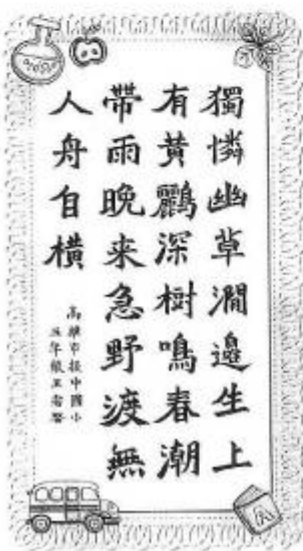 獨憐幽草澗邊生上
有黃鸝深樹鳴春潮
帶雨晚来急野渡無
人舟自橫
高雄市援中國小
五年級王
A